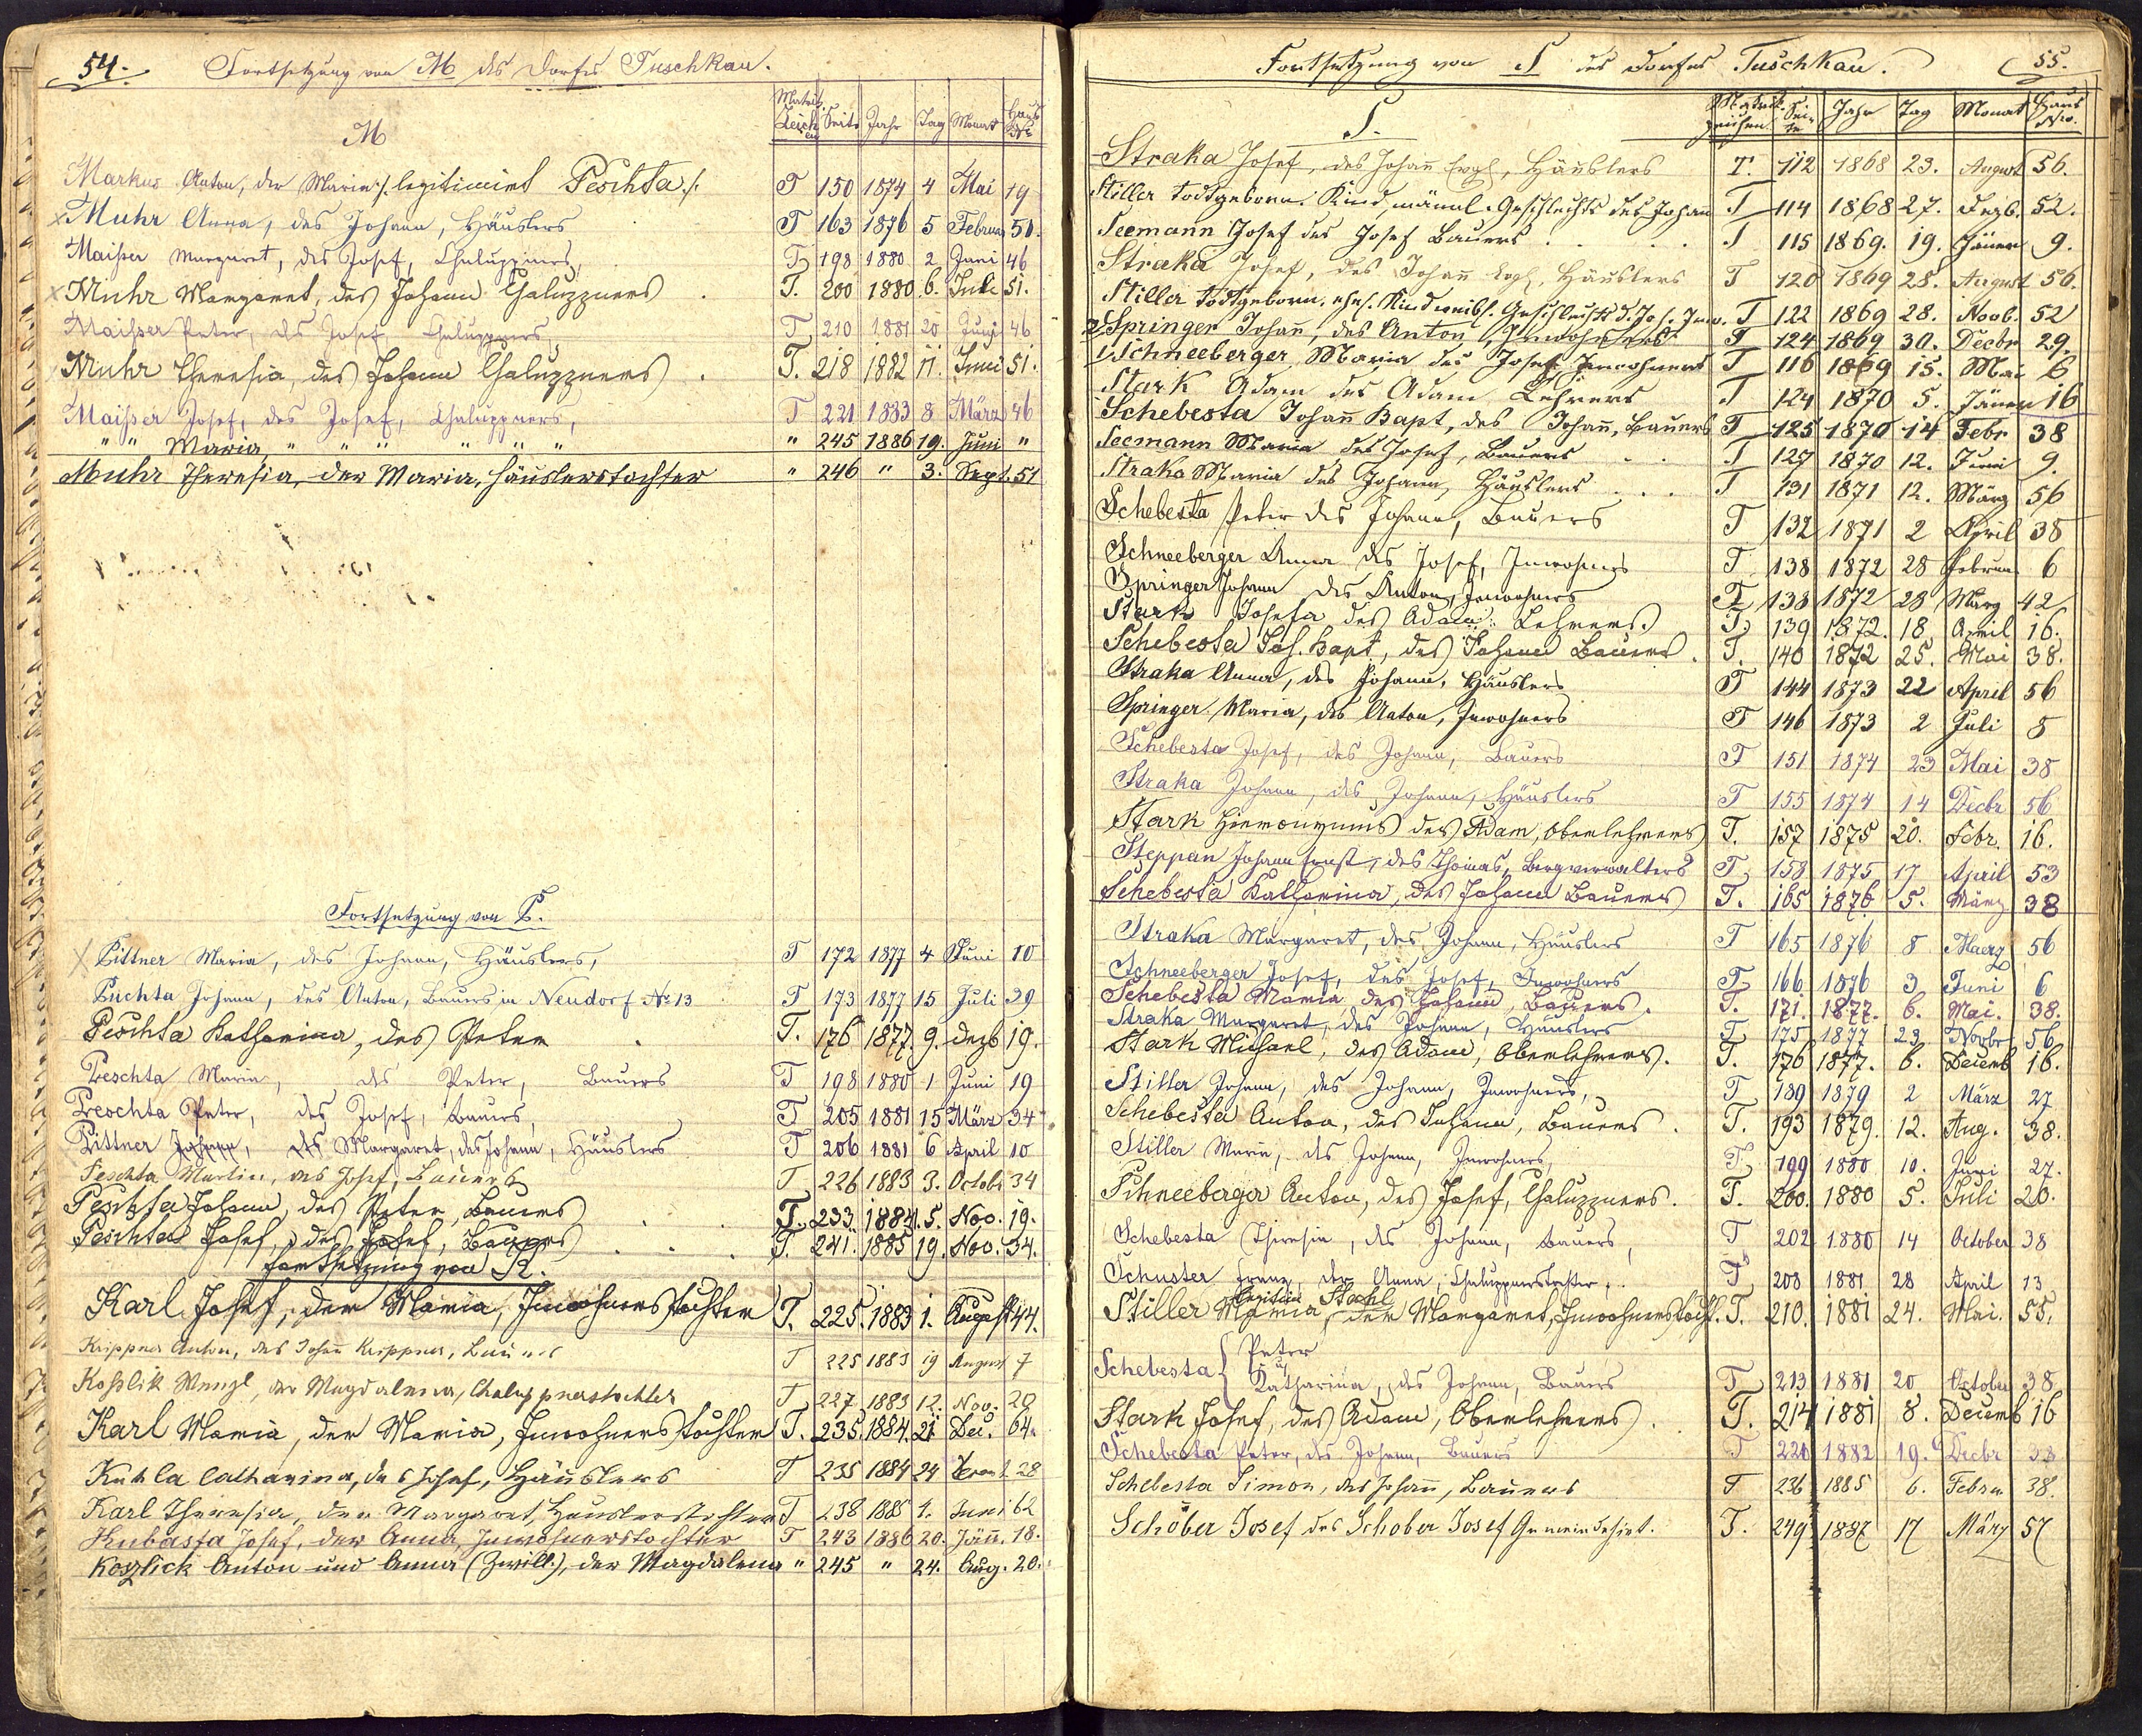 54. Fortsetzung von M des Dorfes Tuschkau.
Matrik. Zeichen Seite Jahr Tag Monat Haus Nro
M
Markus Anton, der Maria /: legitimiert Peschta :/ T 150 1874 4 Mai 19
x Muhr Anna, des Johann, Häuslers T 163 1876 5 Februar 51.
Maißer Margaret, des Josef, Chaluppners, T 198 1880 2 Juni 46
x Muhr Margaret, des Johann Chaluppners. T. 200 1880. 6. Juli 51.
Maißer Peter, des Josef Chaluppners, T 210 1881 20 Juni 46
Muhr Theresia, des Johann Chaluppners. T. 218 1882 11. Juni 51.
Maißer Josef, des Josef, Chaluppners, T 221 1883 8 März 46
" " Maria, " " " " " " " 245 1886 19. Juni "
Muhr Theresia, der Maria, Häuslerstochter " 246 " 3. Sept. 51
Fortsetzung von P.
x Pittner Maria, des Johann, Häuslers, T 172 1877 4 Juni 10
Puchta Johann, des Anton, Bauers in Neudorf No 13 T 173 1877 15 Juli 39
Peschta Katharina, des Peter. T. 176 1877. 9. Dezb 19.
Peschta Maria, des Peter, Bauers T 198 1880 1 Juni 19
Peschta Peter, des Josef, Bauers, T 205 1881 15 März 34
Pittner Johann, des Margaret, des Johann, Häuslers T 206 1881 6 April 10
Peschta Martin, des Josef, Bauers T 226 1883 3. Octob. 34
Peschta Johann, des Peter, Bauers. T. 233. 1884. 5. Nov. 19.
Peschta Josef, des Josef, Bauers. T. 241. 1885 19. Nov. 34.
Fortsetzung von K.
Karl Josef, der Maria, Inwohnerstochter T. 225. 1883 1. August 44.
Krippner Anton, des Johann Krippner, Bauers T 225 1883 19 August 7
Koßlik Wenzl, der Magdalena, Chaluppnerstochter T 227 1883 12. Nov. 20
Karl Maria, der Maria, Inwohnerstochter T. 235. 1884. 21 Dec. 64.
Kutla Catharina, des Josef, Häuslers T 235 1884 24 28
Karl Theresia, der Margaret, Häuslerstochter T 238 1885 1. Juni 62
Hubasta Josef, der Anna, Inwohnerstochter T 243 1886 20. Jänn. 18.
Koszlick Anton und Anna (Zwill.), der Magdalena " 245 " 24. Aug. 20.
Fortsetzung von S des Dorfes Tuschkau. 55.
S. Matrik. Zeichen Seite Jahr Tag Monat Haus Nro.
Straka Josef, des Johann, Häuslers T. 112 1868 23. August 56.
Stiller todtgeboren. Kind, männl. Geschlechts des Johan T 114 1868 27. Dezb. 52.
Seemann Josef des Josef Bauers . . . T 115 1869. 19. Jänner 9.
Straka Josef, des Johann, Häuslers T 120 1869 28. August 56.
Stiller todtgeboren. ehel. Kind weibl. Geschlechts d. Joh. Inw. T 122 1869 28. Novb. 52
2/ Springer Johann, des Anton, Inwohners T 124 1869 30. Decbr 29.
1/ Schneeberger Maria des Josef Inwohners T 116 1869 15. Mai 6
Stark Adam des Adam Lehrers T 124 1870 5. Jänner 16
Schebesta Johann Bapt, des Johann, Bauers T 125 1870 14 Febr 38
Seemann Maria des Josef, Bauers . . T 127 1870 12. Juni 9.
Straka Maria des Johann, Häuslers . . . T 131 1871 12. März 56
Schebesta Peter des Johann, Bauers T 132 1871 2 April 38
Schneeberger Anna des Josef, Inwohners T 138 1872 28 Februar 6
Springer Johann des Anton, Inwohners T 138 1872 28 März 42
Stark Josefa des Adam Lehrers. T. 139 1872. 18 April 16.
Schebesta Joh. Bapt, des Johann Bauers. T. 140 1872 25. Mai 38.
Straka Anna, des Johann, Häuslers T 144 1873 22 April 56
Springer Maria, des Anton, Inwohners T 146 1873 2 Juli 8
Schebesta Josef, des Johann, Bauers T 151 1874 23 Mai 38
Straka Johann, des Johann, Häuslers T 155 1874 14 Decbr 56
Stark Hieronymus des Adam, Oberlehrers T. 157 1875 20. Febr. 16.
Steppan Johann Ernst, des Thomas, Bergverwalters T 158 1875 17 April 53
Schebesta Katharina, des Johann Bauers T. 165 1876 5. März 38
Straka Margaret, des Johann, Häuslers T 165 1876 8 Maerz 56
Schneeberger Josef, des Josef, Inwohners T 166 1876 3 Juni 6
Schebesta Maria des Johann, Bauers. T. 171. 1877. 6. Mai. 38.
Straka Margaret, des Johann, Häuslers T 175 1877 23 Novbr 56
Stark Michael, des Adam, Oberlehrers. T. 176 1877. 6. Decemb 16.
Stiller Johann, des Johann, Inwohners, T 189 1879 2 März 27
Schebesta Anton, des Johann, Bauers. T. 193 1879. 12. Aug. 38.
Stiller Maria, des Johann, Inwohners, T 199 1880 10. Juni 27.
Schneeberger Anton, des Josef, Chaluppners. T. 200. 1880 5. Juli 20.
Schebesta Theresia, des Johann, Bauers, T 202 1880 14 October 38
Schuster Franz, der Anna, Chaluppnerstochter, T 208 1881 28 April 13
Stiller Maria, der Margaret, Inwohnerstocht. T. 210. 1881 24. Mai. 55.
Schebesta { Peter u Katharina, des Johann, Bauers T 213 1881 20 October 38
Stark Josef, des Adam, Oberlehrers. T. 214 1881 8. Decemb 16
Schebesta Peter, des Johann, Bauers T 220 1882 19. Decbr 38
Schebesta Simon, des Johann, Bauers T 236 1885 6. Febru 38.
Schober Josef des Schober Josef Gemeindehirt. T. 249 1887 17 März 57